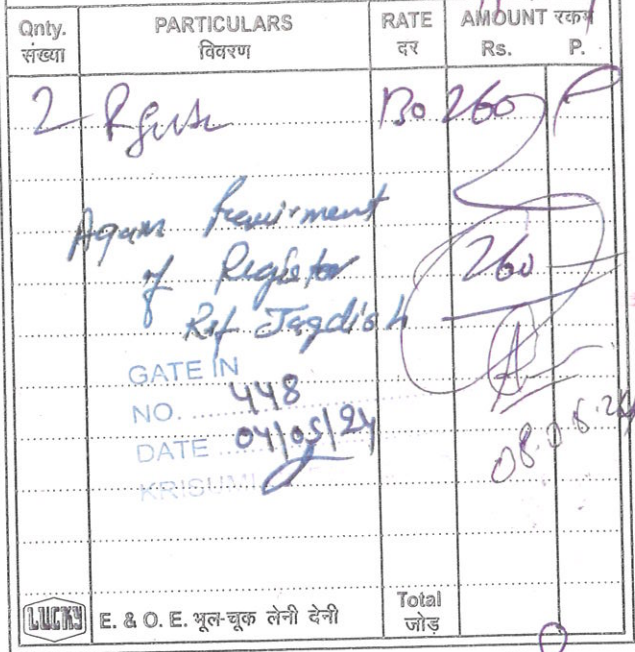 Qnty. PARTICULARS RATE AMOUNT रकम
संख्या विवरण दर Rs. P.
2 130 260
requirment
of Register
Ref Jagdish
260
GATE IN
NO. 448
DATE 04/05/24
KRISUMI
08.05.24
LUCKY E. & O. E. भूल-चूक लेनी देनी Total
जोड़